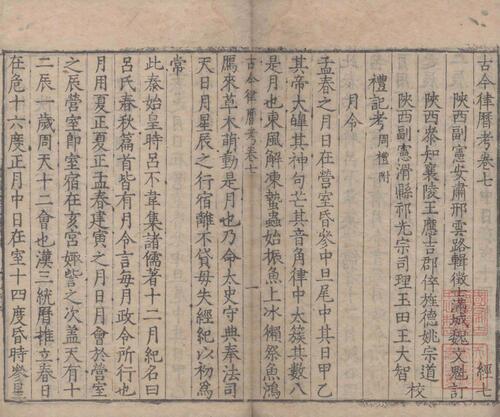 古今律曆考卷七 經七
陝西副憲安肅邢雲路輯 徵士滿城魏文魁訂
陝西參知襄陵王應吉 郡倅旌德姚宗道
陝西副憲滑縣祁光宗 司理玉田王大智 校
禮記考 周禮附
月令
孟春之月日在營室昏參中旦尾中其日甲乙
其帝大皥其神句芒其音角律中太簇其數八
是月也東風解凍蟄蟲始振魚上冰獺祭魚鴻
古今律曆考卷七 一
鴈來草木萌動是月也乃命太史守典奉法司
天日月星辰之行宿離不貸毋失經紀以初為
常
此秦始皇時呂不韋集諸儒著十二月紀名曰
呂氏春秋篇首皆有月令言每月政令所行也
月用夏正夏正孟春建寅之月日月會於營室
之辰營室卽室宿在亥宮娵訾之次蓋天有十
二辰一歲周天十二會也漢三統曆推立春日
在危十六度正月中日在室十四度昏時參星